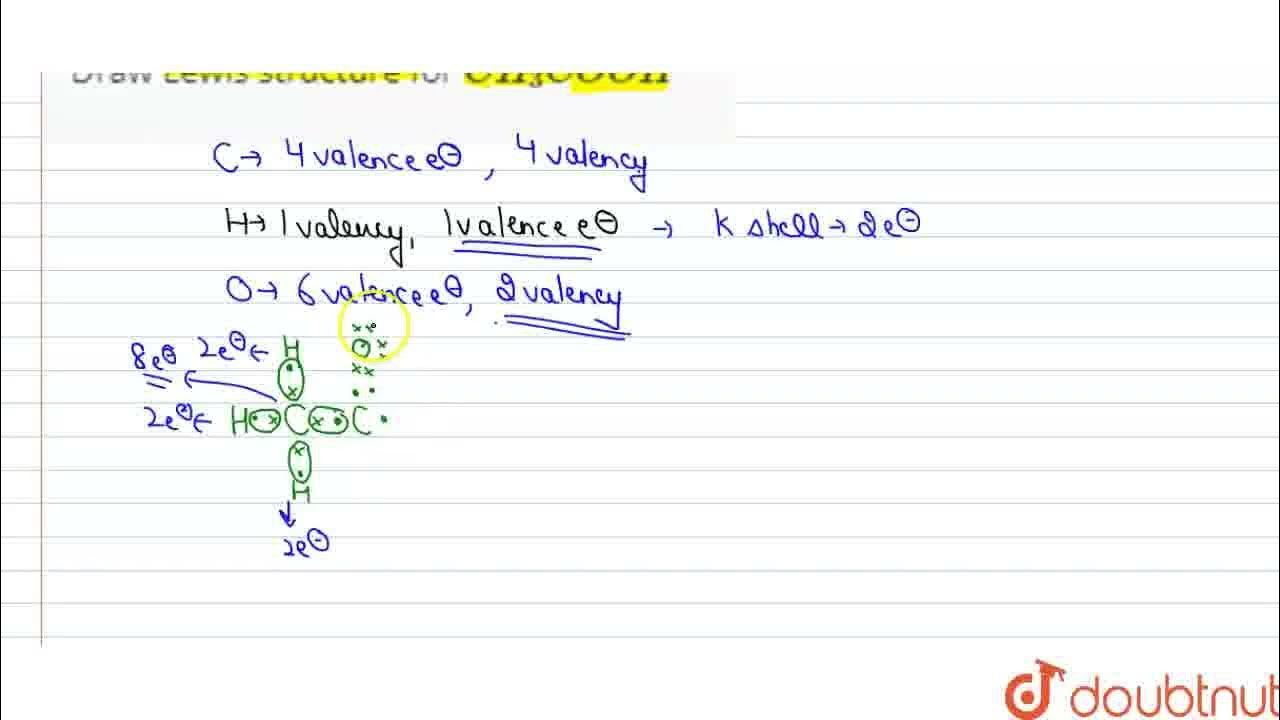 Draw Lewis structure for CH₃COOH
C→ 4 valence e⊖, 4 valency
H→ 1 valency, 1 valence e⊖ → K shell→ 2e⊖
O→ 6 valence e⊖, 2 valency
8e⊖ 2e⊖← H O
2e⊖← H C C
H
2e⊖
doubtnut